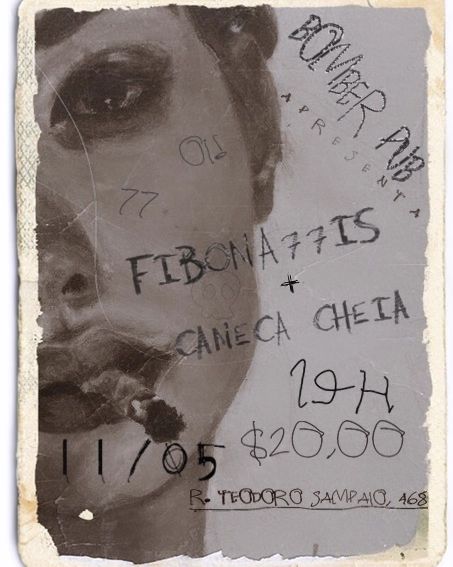 BOMBER PUB
APRESENTA
Oi!
77
FIBONA77IS
+
CANECA CHEIA
19H
11/05 $20,00
R. TEODORO SAMPAIO, 468